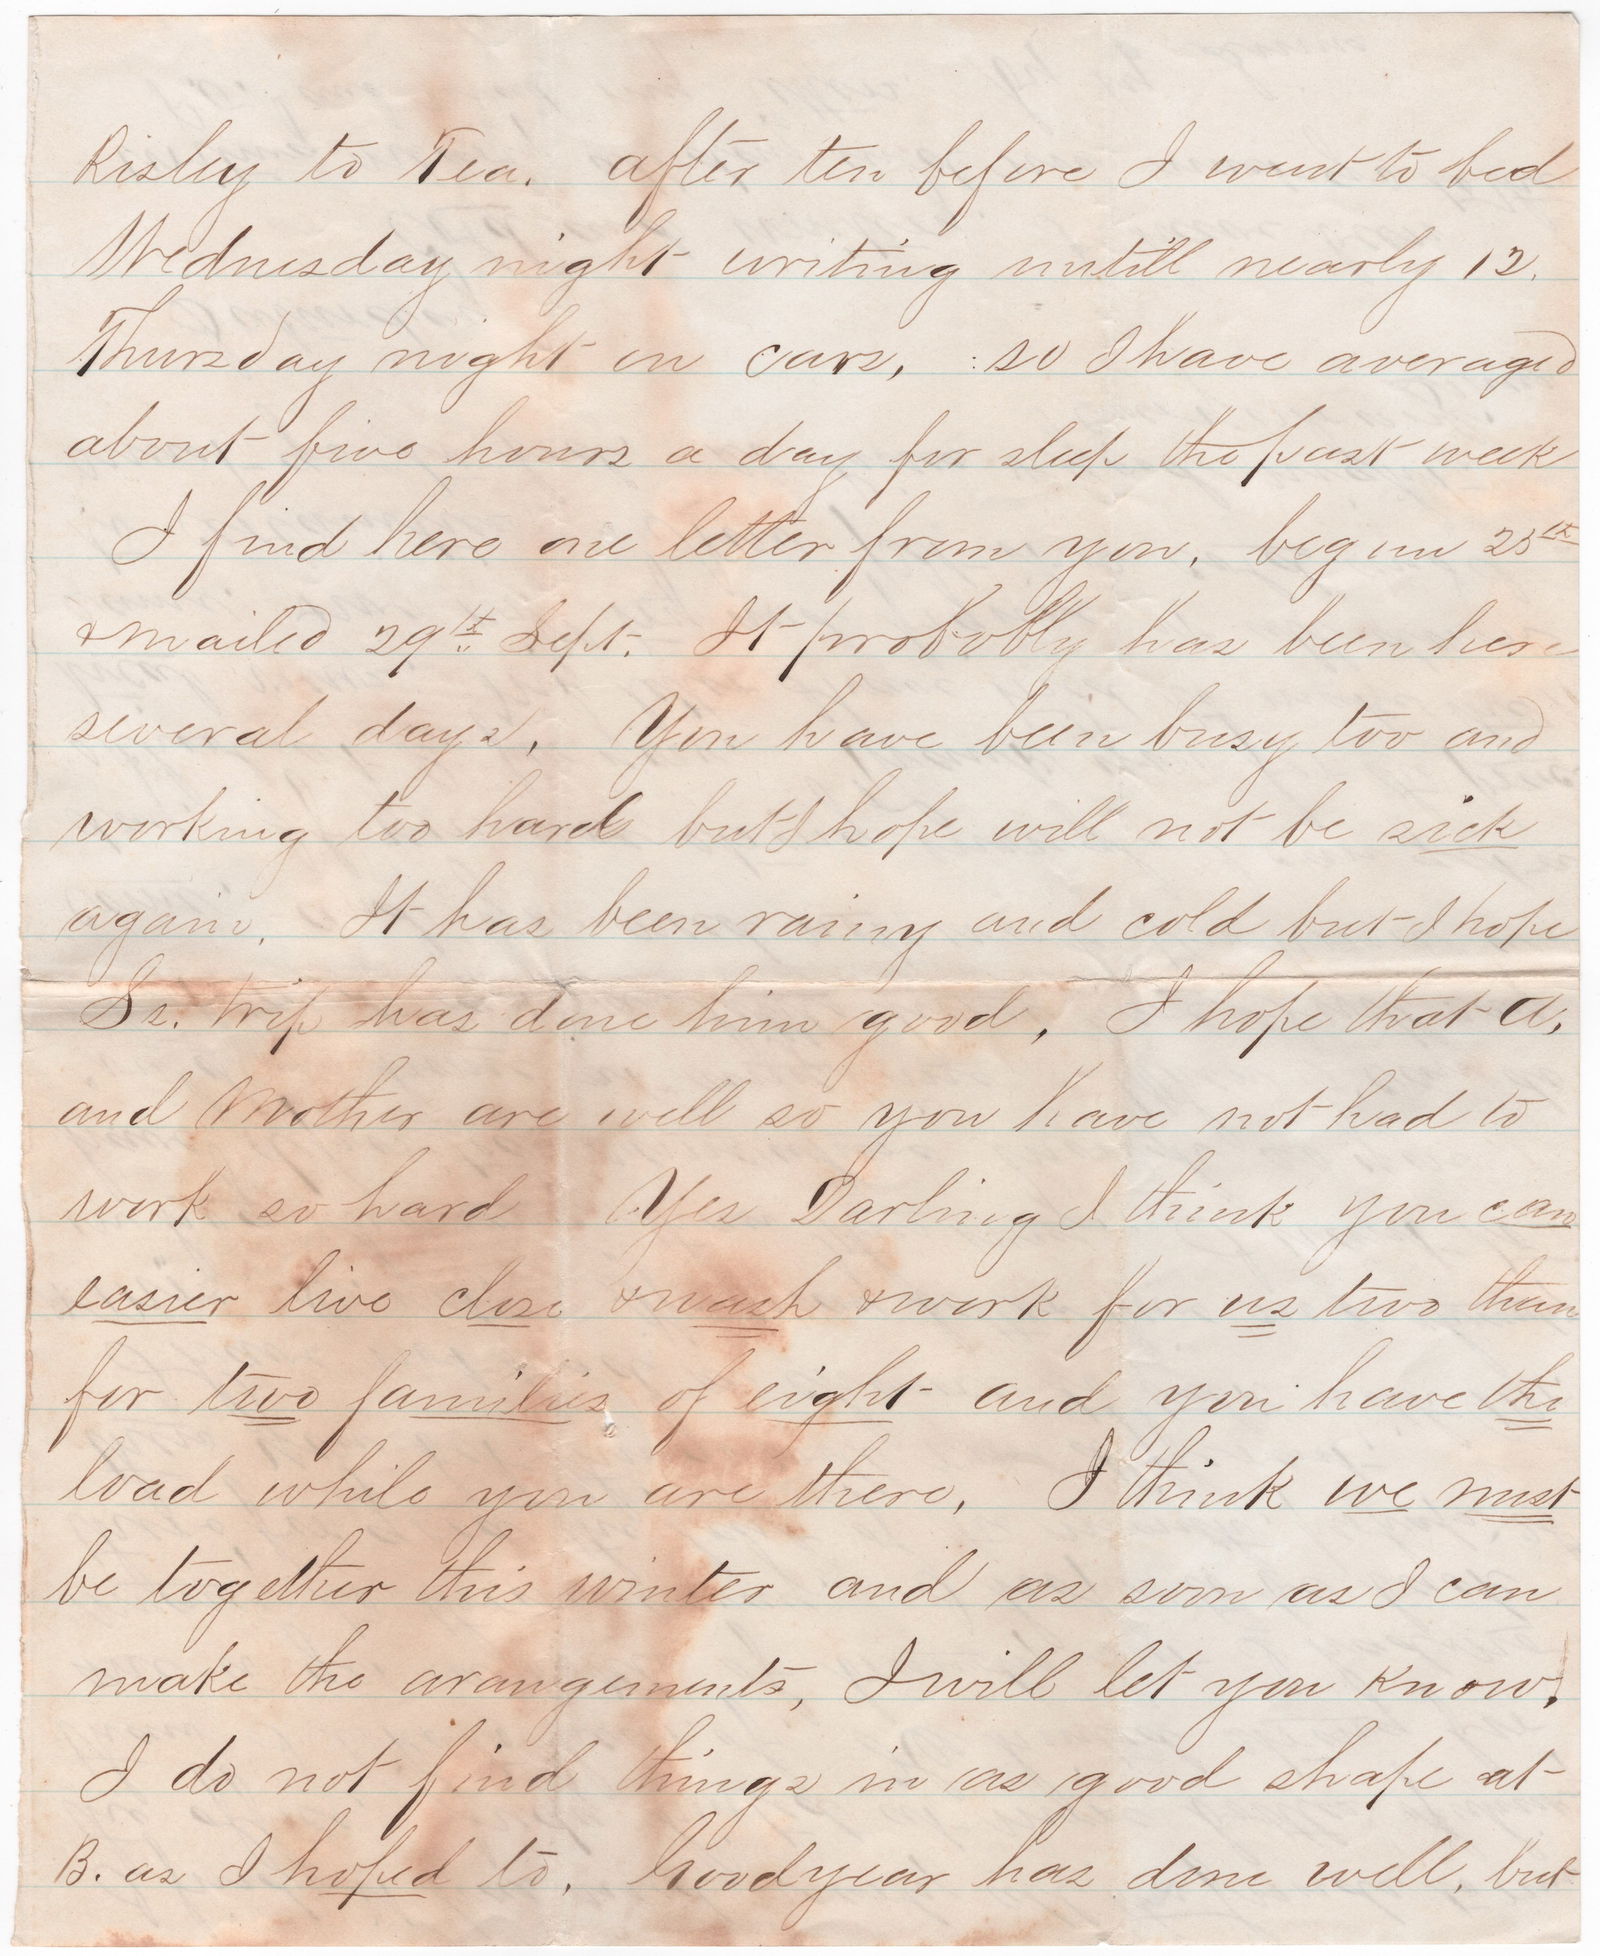 Risley to Tea. after ten before I went to bed
Wednesday night writing untill nearly 12.
Thursday night on cars, so I have averaged
about five hours a day for sleep the past week
I find here one letter from you, begun 25th
& mailed 29th Sept. It probobly has been here
several days. You have been busy too and
working too hard but I hope will not be sick
again. It has been rainy and cold but I hope
Ss. trip has done him good, I hope that A.
and Mother are well so you have not had to
work so hard Yes Darling I think you can
easier live close & wash & work for us two than
for two families of eight and you have the
load while you are there, I think we must
be together this winter and as soon as I can
make the arangements, I will let you know.
I do not find things in as good shape at
B. as I hoped to, Goodyear has done well, but